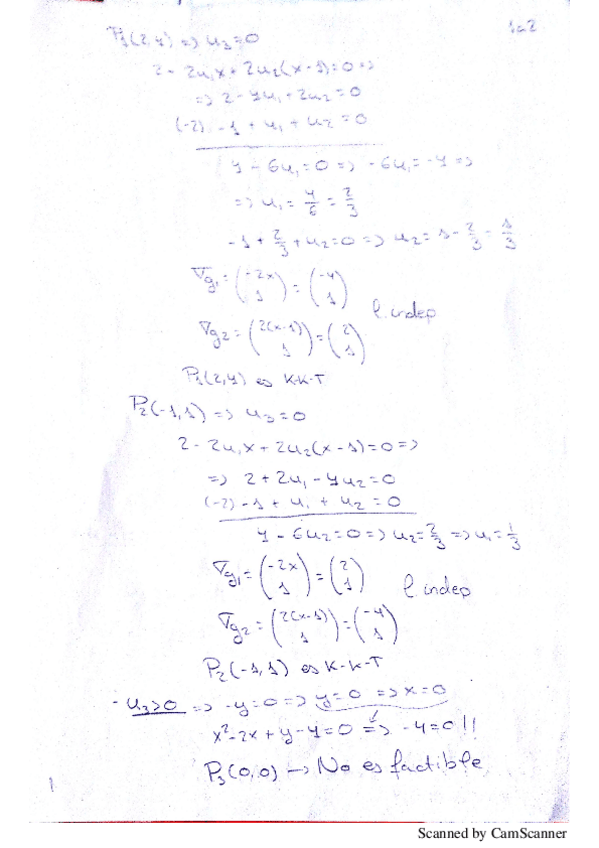 P₁(2,4) => u₃=0
1a2
2-2u₁x+2u₂(x-1)=0=>
=> 2-4u₁+2u₂=0
(-2) -1+u₁+u₂=0
4-6u₁=0=> -6u₁=-4=>
=> u₁=4/6=2/3
-1+2/3+u₂=0=> u₂=1-2/3=1/3
∇g₁=(-2x 1)=(-4 1)
l.indep
∇g₂=(2(x-1) 1)=(2 1)
P₁(2,4) es K-K-T
P₂(-1,1)=> u₃=0
2-2u₁x+2u₂(x-1)=0=>
=> 2+2u₁-4u₂=0
(-2) -1+u₁+u₂=0
4-6u₂=0=> u₂=2/3=> u₁=1/3
∇g₁=(-2x 1)=(2 1)
l.indep
∇g₂=(2(x-1) 1)=(-4 1)
P₂(-1,1) es K-K-T
-u₃>0 => -y=0=> y=0 => x=0
x²-2x+y-4=0 => -4=0!!
P₃(0,0) -> No es factible
Scanned by CamScanner